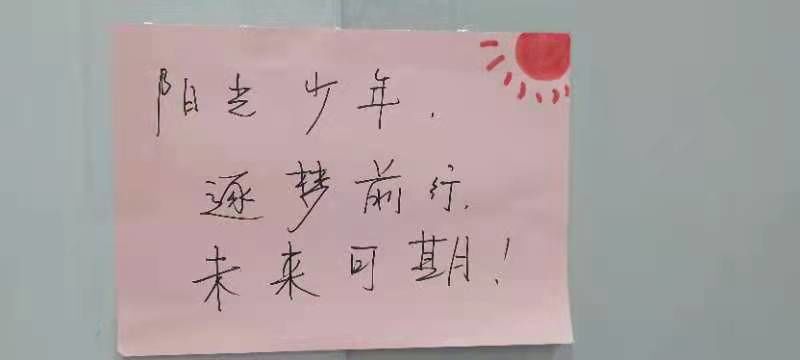 阳光少年,
逐梦前行,
未来可期!